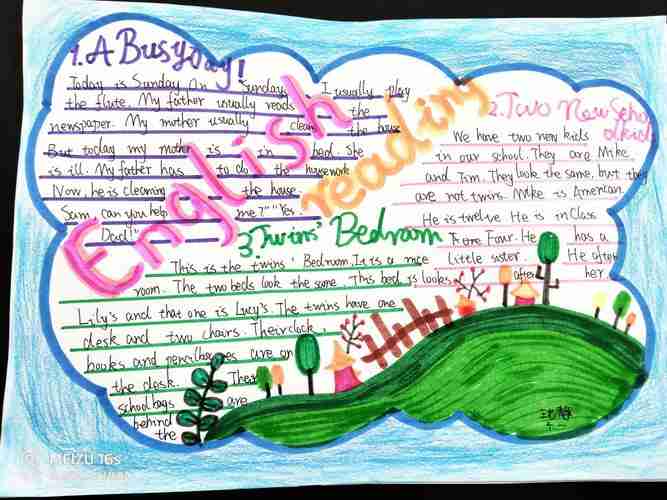 1. A Busy Day!
Today is Sunday On Sunday I usually play
the flute. My father usually reads the
newspaper. My mother usually clean the house
But today my mother is in bed. She
is ill. My father has to do the housework
Now, he is cleaning the house.
Sam, can you help me?" "Yes.
Dad!"
English
reading
2. Two New School
kids
We have two new kids
in our school. They are Mike
and Tim. They look the same, but they
are not twins. Mike is American.
He is twelve He is in Class
Four. He has a
little sister. He often
looks after her
3. Twins' Bedroom
This is the twins' Bedroom. It is a nice
room. The two beds look the same. This bed is
Lily's and that one is Lucy's. The twins have one
desk and two chairs. Their clock,
books and pencilboxes are on
the desk. Their
schoolbags are
behind
the
MEIZU 16s